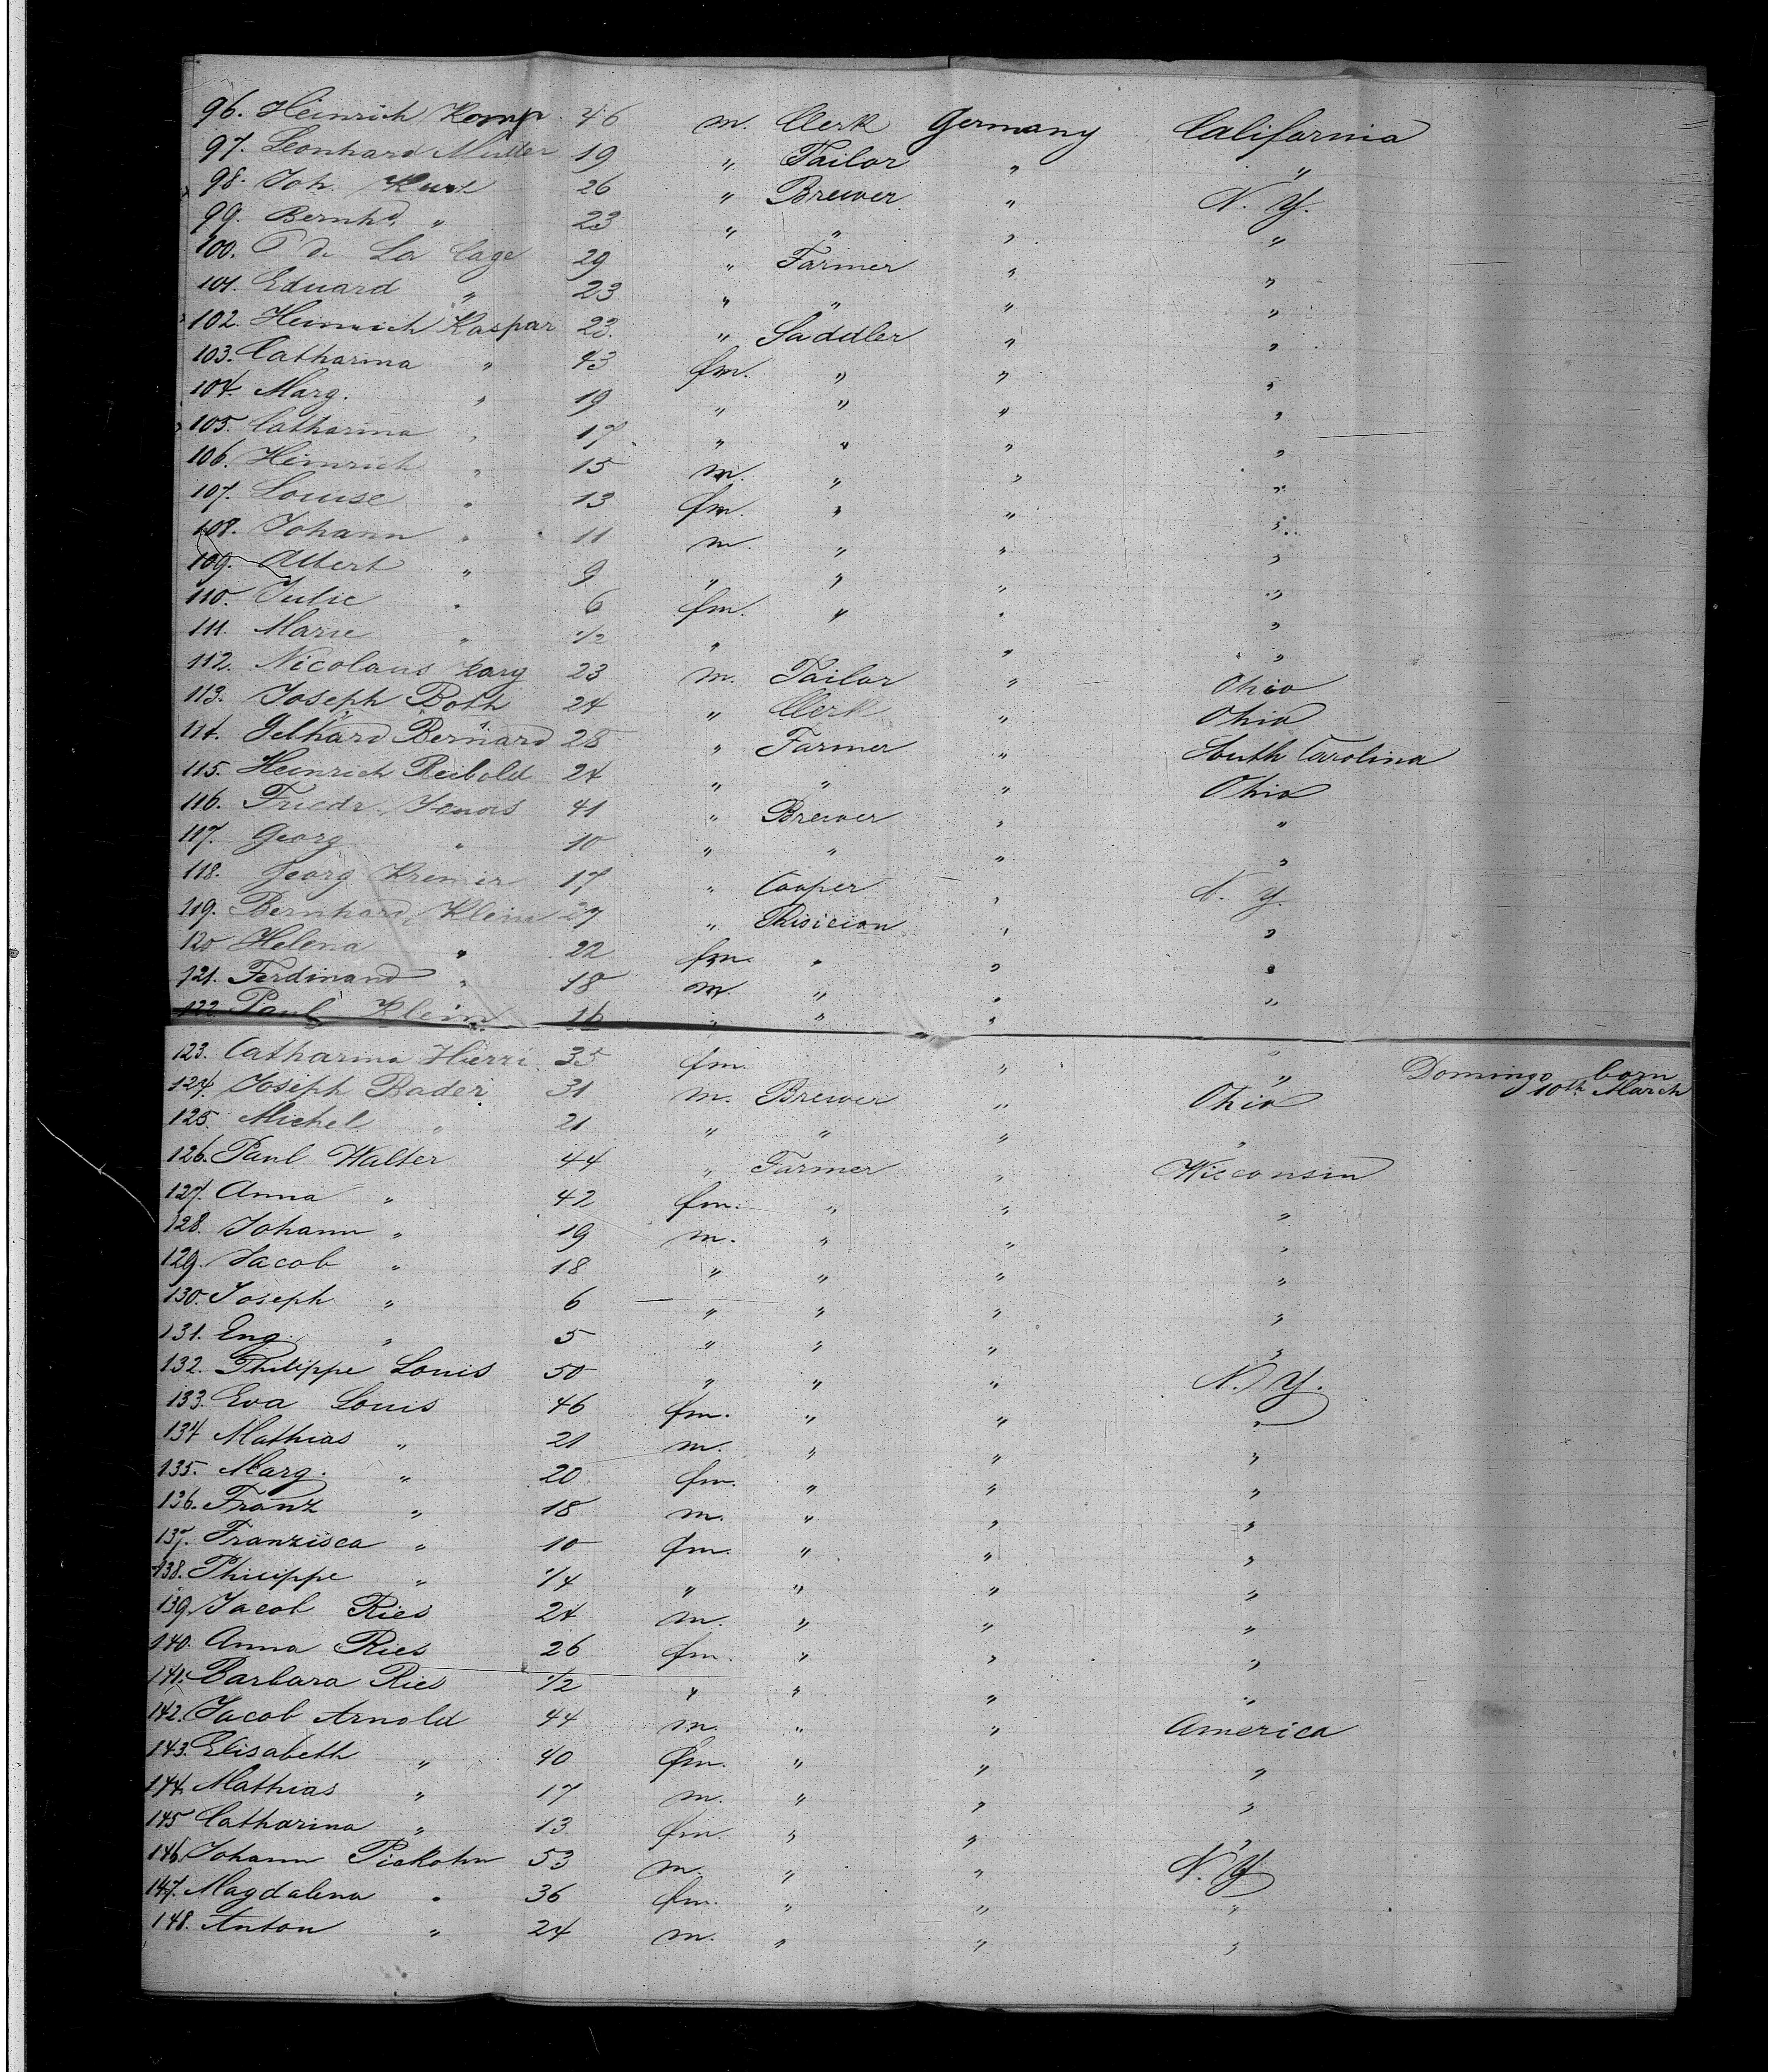 96. Heinrich Komp 46 m. Clerk Germany California
97. Leonhard Müller 19 " Tailor " "
98. Joh. Kurt 26 " Brewer " N. Y.
99. Bernhd " 23 " " " "
100. P de La Cage 29 " Farmer " "
101. Eduard " 23 " " " "
102. Heinrich Kaspar 23. " Saddler " "
103. Catharina " 43 fm. " " "
104. Marg. " 19 " " " "
105. Catharina " 17 " " " "
106. Heinrich " 15 m. " " "
107. Louise " 13 fm. " " "
108. Johann " 11 m. " " "
109. Albert " 9 " " " "
110. Julie " 6 fm. " " "
111. Marie " 1/2 " " "
112. Nicolaus Karg 23 m. Tailor " Ohio
113. Joseph Both 24 " Clerk " Ohio
114. Gebhard Bernard 28 " Farmer " South Carolina
115. Heinrich Reibold 24 " " " Ohio
116. Friedr. 41 " Brewer " "
117. Georg " 10 " " " "
118. Georg Kremer 17 " Cooper " N. Y.
119. Bernhard Klein 27 " Phisician " "
120 Helena " 22 fm. " " "
121. Ferdinand " 18 m. " " "
122. Paul Klein 16 " " " "
123. Catharina 35 fm. " "
Domingo born
10th March
124. Joseph Bader 31 m. Brewer " Ohio
125. Michel " 21 " " " "
126. Paul Walter 44 " Farmer " Wisconsin
127. Anna " 42 fm. " " "
128. Johann " 19 m. " " "
129. Jacob " 18 " " " "
130. Joseph " 6 " " " "
131. Eng. " 5 " " " "
132. Philippe Louis 50 " " " N. Y.
133. Eva Louis 46 fm. " " "
134 Mathias " 21 m. " " "
135. Marg. " 20 fm. " " "
136. Franz " 18 m. " " "
137. Franzisca " 10 fm. " " "
138. Philippe " 1/4 " " " "
139. Jacob Ries 24 m. " " "
140. Anna Ries 26 fm. " " "
141. Barbara Ries 1/2 " " " "
142. Jacob Arnold 44 m. " " America
143. Elisabeth " 40 fm. " " "
144. Mathias " 17 m. " " "
145 Catharina " 13 fm. " " "
146. Johann Piekohn 53 m. " " N. Y.
147. Magdalena " 36 fm. " " "
148. Anton " 24 m. " " "